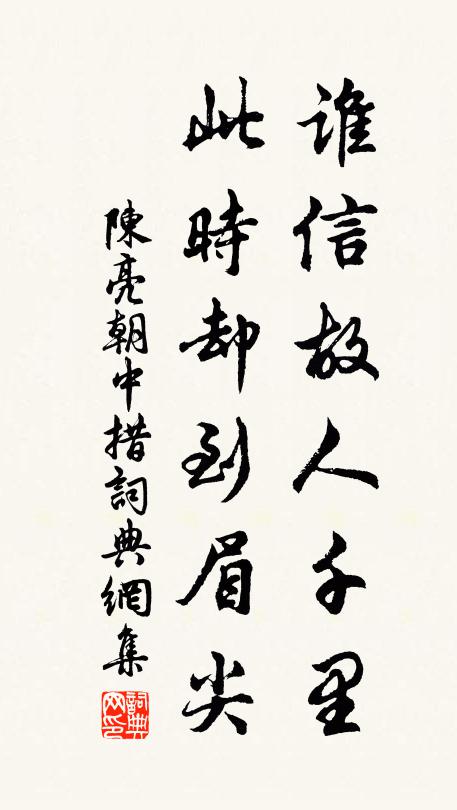 誰信故人千里
此時却到眉尖
陳亮朝中措詞典網集
詞典网印